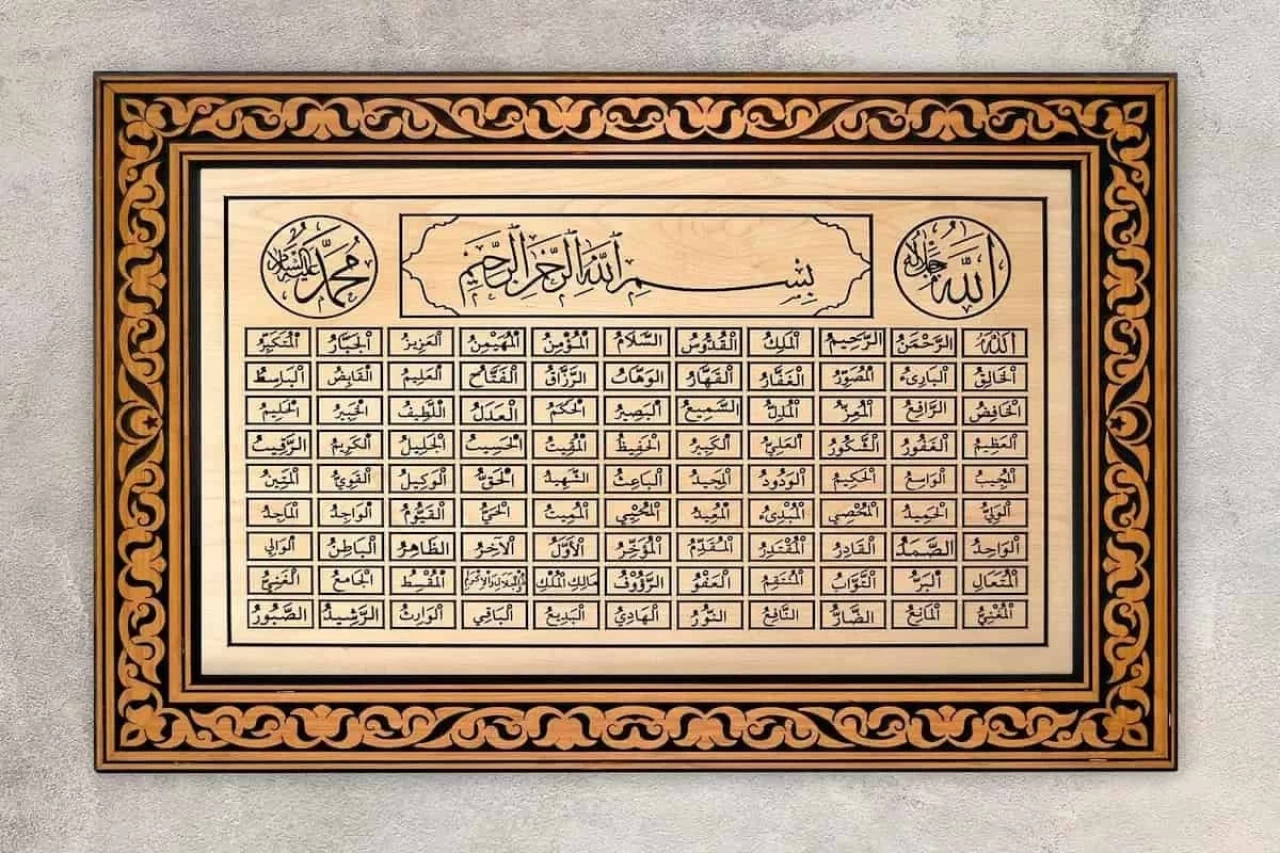 الله جل جلاله
بسم الله الرحمن الرحيم
محمد عليه السلام
اَللّٰهُ الرَّحْمَنُ الرَّحِيمُ الْمَلِكُ الْقُدُّوسُ السَّلَامُ الْمُؤْمِنُ الْمُهَيْمِنُ الْعَزِيزُ الْجَبَّارُ الْمُتَكَبِّرُ
الْخَالِقُ الْبَارِئُ الْمُصَوِّرُ الْغَفَّارُ الْقَهَّارُ الْوَهَّابُ الرَّزَّاقُ الْفَتَّاحُ الْعَلِيمُ الْقَابِضُ الْبَاسِطُ
الْخَافِضُ الرَّافِعُ الْمُعِزُّ الْمُذِلُّ السَّمِيعُ الْبَصِيرُ الْحَكَمُ الْعَدْلُ اللَّطِيفُ الْخَبِيرُ الْحَلِيمُ
الْعَظِيمُ الْغَفُورُ الشَّكُورُ الْعَلِيُّ الْكَبِيرُ الْحَفِيظُ الْمُقِيتُ الْحَسِيبُ الْجَلِيلُ الْكَرِيمُ الرَّقِيبُ
الْمُجِيبُ الْوَاسِعُ الْحَكِيمُ الْوَدُودُ الْمَجِيدُ الْبَاعِثُ الشَّهِيدُ الْحَقُّ الْوَكِيلُ الْقَوِيُّ الْمَتِينُ
الْوَلِيُّ الْحَمِيدُ الْمُحْصِي الْمُبْدِئُ الْمُعِيدُ الْمُحْيِي الْمُمِيتُ الْحَيُّ الْقَيُّومُ الْوَاجِدُ الْمَاجِدُ
الْوَاحِدُ الصَّمَدُ الْقَادِرُ الْمُقْتَدِرُ الْمُقَدِّمُ الْمُؤَخِّرُ الْأَوَّلُ الْآخِرُ الظَّاهِرُ الْبَاطِنُ الْوَالِي
الْمُتَعَالِ الْبَرُّ التَّوَّابُ الْمُنْتَقِمُ الْعَفُوُّ الرَّؤُوفُ مَالِكُ الْمُلْكِ ذُو الْجَلَالِ وَالْإِكْرَامِ الْمُقْسِطُ الْجَامِعُ الْغَنِيُّ
الْمُغْنِيُ الْمَانِعُ الضَّارُّ النَّافِعُ النُّورُ الْهَادِيُ الْبَدِيعُ الْبَاقِي الْوَارِثُ الرَّشِيدُ الصَّبُورُ